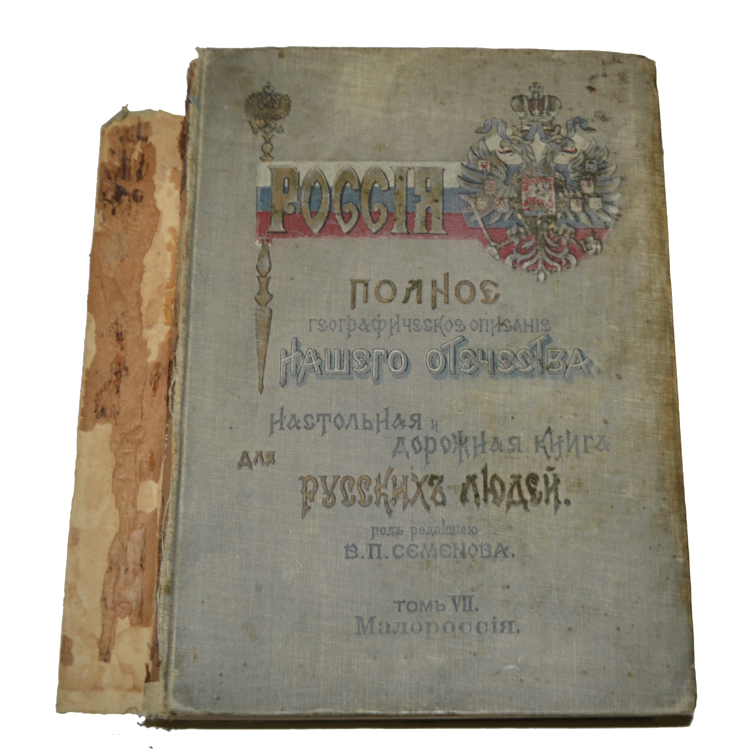 РОССІЯ
ПОЛНОЕ
ГЕОГРАФИЧЕСКОЕ ОПИСАНІЕ
НАШЕГО ОТЕЧЕСТВА.
НАСТОЛЬНАЯ и
ДОРОЖНАЯ КНИГА
ДЛЯ
РУССКИХЪ ЛЮДЕЙ.
подъ редакціею
В. П. СЕМЕНОВА.
ТОМЪ VII.
Малороссія.